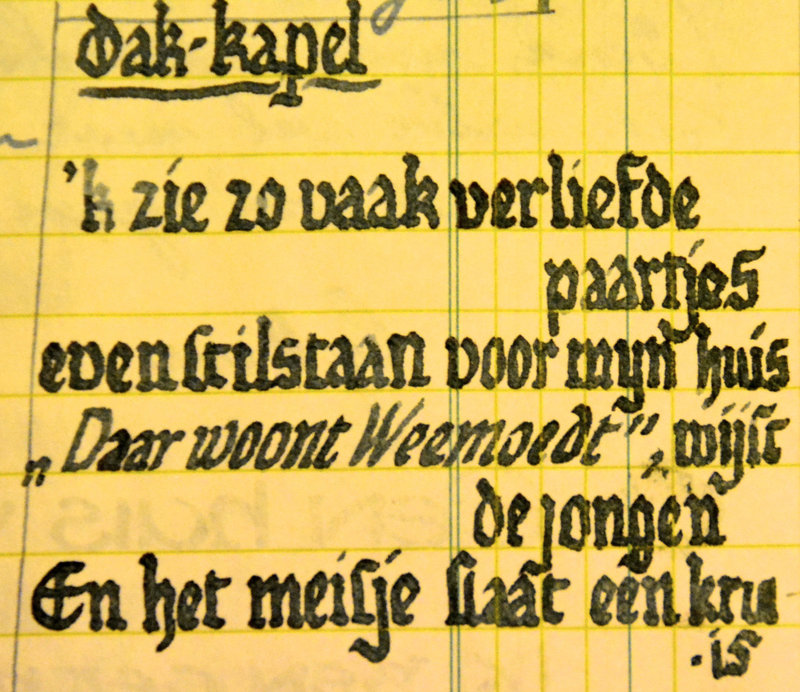 Dak-kapel
'k zie zo vaak verliefde
paartjes
even stilstaan voor mijn huis
„Daar woont Weemoedt”, wijst
de jongen
En het meisje slaat een kru
-is